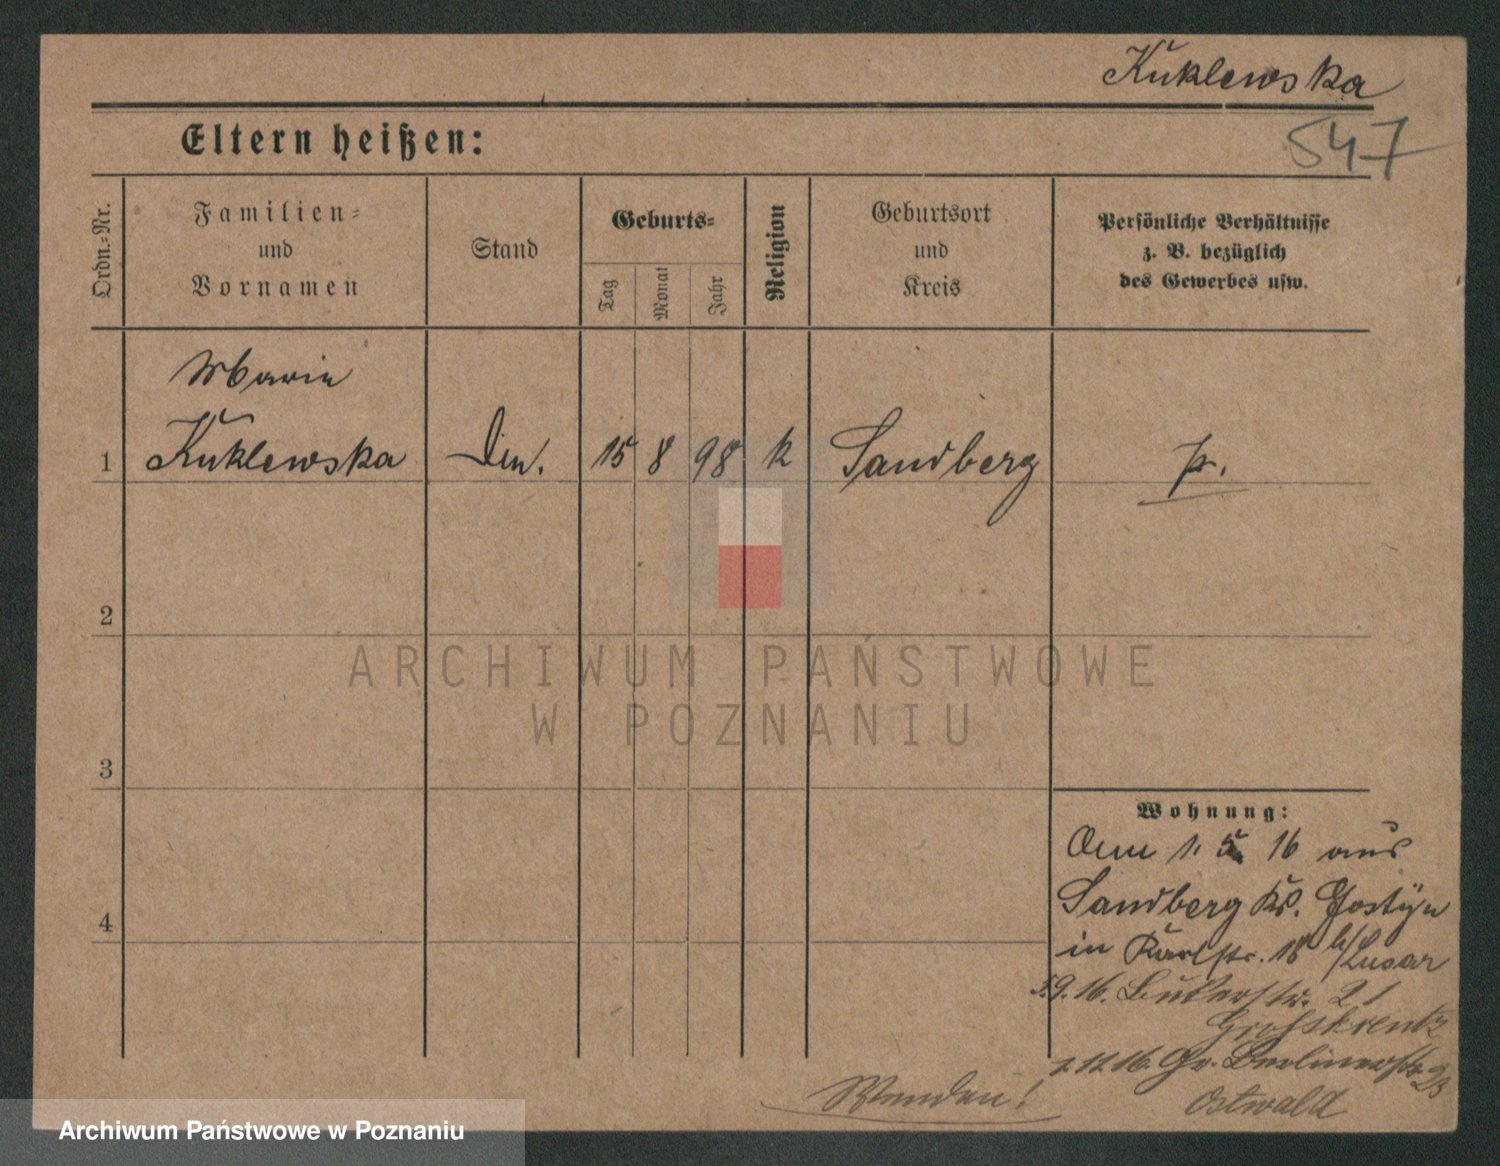 Kuklewska
547
Eltern heißen:
Ordn.-Nr.
Familien-
und
Vornamen
Stand
Geburts-
Tag
Monat
Jahr
Religion
Geburtsort
und
Kreis
Persönliche Verhältnisse
z. B. bezüglich
des Gewerbes usw.
Marie
1 Kuklewska Din. 15 8 98 k Sandberg p.
2
3
4
ARCHIWUM PAŃSTWOWE
W POZNANIU
Wohnung:
1. 5 16 aus
Sandberg Ks. Gostÿn
in Karlstr. 18 b/
5.9.16. 21
1.11.16. Gr. Berlinerstr. 23
Ostwald
Wenden!
Archiwum Państwowe w Poznaniu